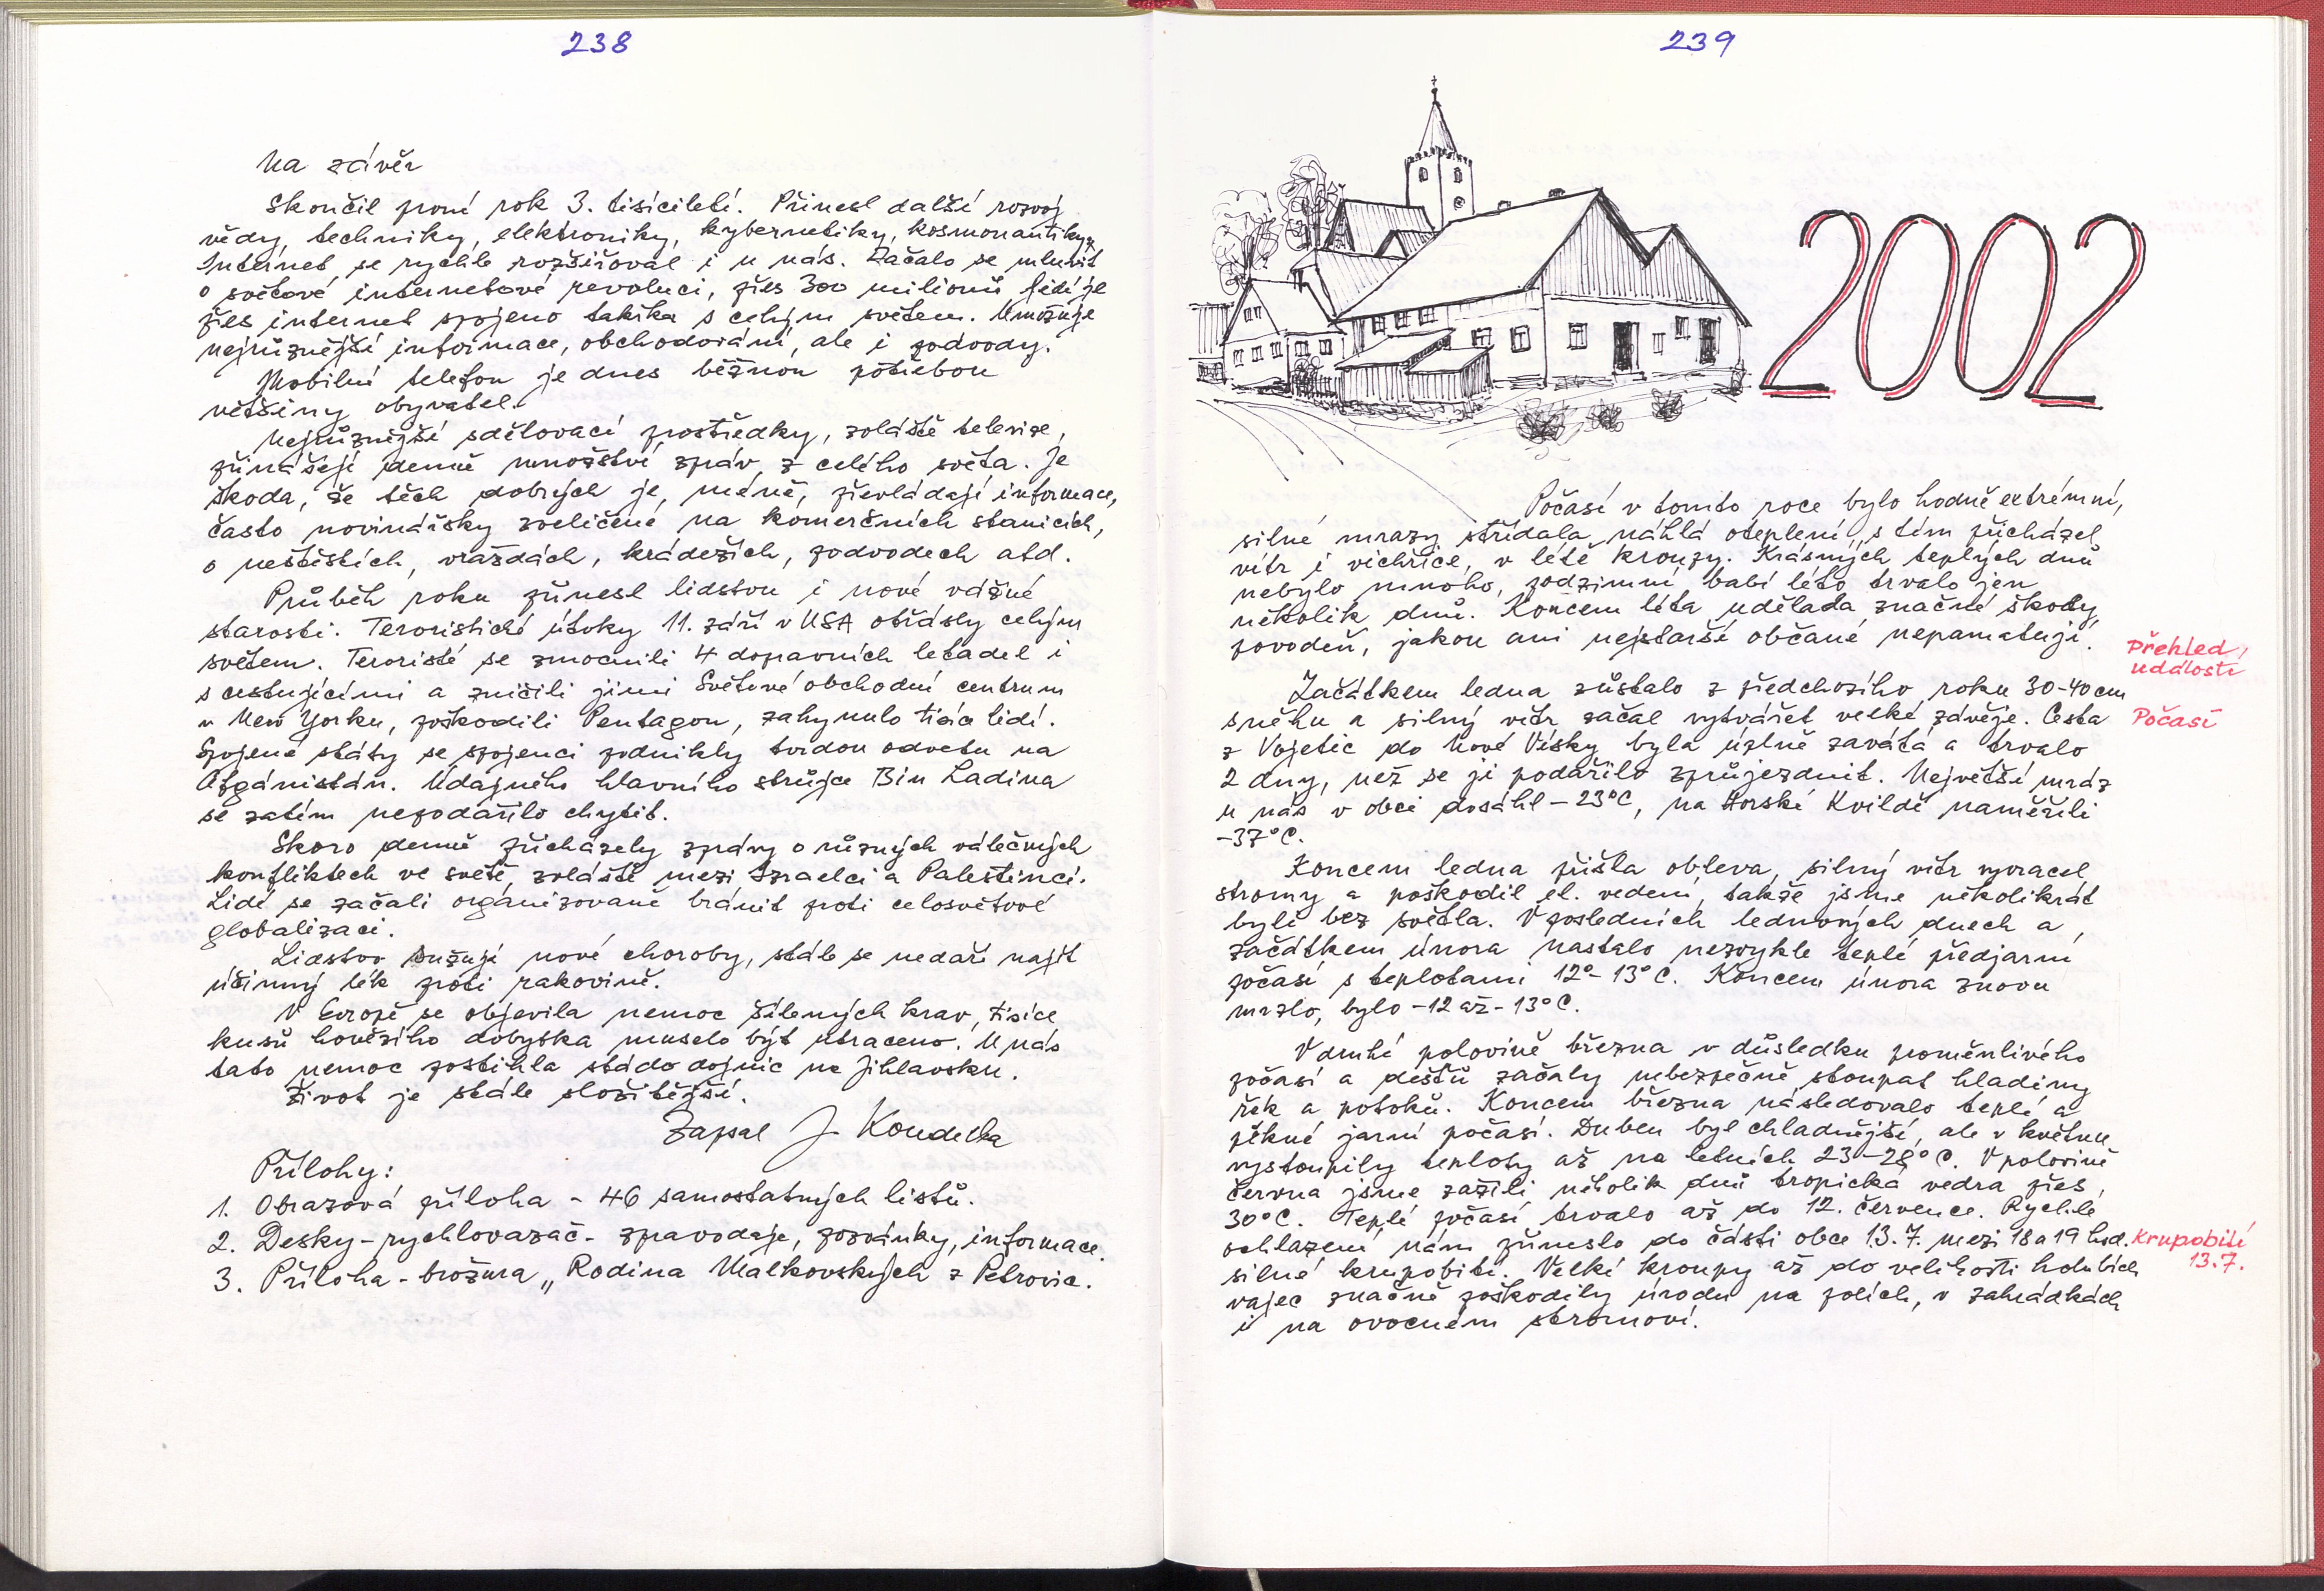 238
Na závěr
Skončil první rok 3. tisíciletí. Přinesl další rozvoj
vědy, techniky, elektroniky, kybernetiky, kosmonautiky.
Internet se rychle rozšiřoval i u nás. Začalo se mluvit
o světové internetové revoluci, přes 300 milionů lidí je
přes internet spojeno takřka s celým světem. Umožňuje
nejrůznější informace, obchodování, ale i podvody.
Mobilní telefon je dnes běžnou potřebou
většiny obyvatel.
Nejrůznější sdělovací prostředky, zvláště televize,
přinášejí denně množství zpráv z celého světa. Je
škoda, že těch dobrých je méně, převládají informace,
často novinářsky zveličené na komerčních stanicích,
o neštěstích, vraždách, krádežích, podvodech atd.
Průběh roku přinesl lidstvu i nové vážné
starosti. Teroristické útoky 11. září v USA otřásly celým
světem. Teroristé se zmocnili 4 dopravních letadel i
s cestujícími a zničili jimi Světové obchodní centrum
v New Yorku, poškodili Pentagon, zahynulo tisíce lidí.
Spojené státy se spojenci podnikly tvrdou odvetu na
Afgánistán. Údajného hlavního strůjce Bin Ladina
se zatím nepodařilo chytit.
Skoro denně přicházely zprávy o různých válečných
konfliktech ve světě, zvláště mezi Izraelci a Palestinci.
Lidé se začali organizovaně bránit proti celosvětové
globalizaci.
Lidstvo sužují nové choroby, stále se nedaří najít
účinný lék proti rakovině.
V Evropě se objevila nemoc šílených krav, tisíce
kusů hovězího dobytka muselo být utraceno. U nás
tato nemoc postihla stádo dojnic na Jihlavsku.
Život je stále složitější.
Zapsal J. Koudelka
Přílohy:
1. Obrazová příloha - 46 samostatných listů.
2. Desky - rychlovazač - zpravodaje, pozvánky, informace.
3. Příloha - brožura „Rodina Malkovských z Petrovic.
239
2002
Počasí v tomto roce bylo hodně extrémní,
silné mrazy střídala náhlá oteplení, s tím přicházel
vítr i vichřice, v létě kroupy. Krásných teplých dnů
nebylo mnoho, podzimní babí léto trvalo jen
několik dnů. Koncem léta udělala značné škody
povodeň, jakou ani nejstarší občané nepamatují.
Přehled
událostí
Začátkem ledna zůstalo z předchozího roku 30-40 cm
sněhu a silný vítr začal vytvářet velké závěje. Cesta
Počasí
z Vojetic do Nové Vísky byla úplně zavátá a trvalo
2 dny, než se ji podařilo zprůjezdnit. Největší mráz
u nás v obci dosáhl -23°C, na Horské Kvildě naměřili
-37°C.
Koncem ledna přišla obleva, silný vítr vyvracel
stromy a poškodil el. vedení, takže jsme několikrát
byli bez světla. V posledních lednových dnech a
začátkem února nastalo nezvykle teplé předjarní
počasí s teplotami 12°-13°C. Koncem února znovu
mrzlo, bylo -12 až -13°C.
V druhé polovině března v důsledku proměnlivého
počasí a dešťů začaly nebezpečně stoupat hladiny
řek a potoků. Koncem března následovalo teplé a
pěkné jarní počasí. Duben byl chladnější, ale v květnu
vystoupily teploty až na letních 23-28°C. V polovině
června jsme zažili několik dnů tropická vedra přes
30°C. Teplé počasí trvalo až do 12. července. Rychlé
ochlazení nám přineslo do části obce 13.7. mezi 18 a 19 hod.
Krupobití
13.7.
silné krupobití. Velké kroupy až do velikosti holubích
vajec značně poškodily úrodu na polích, v zahrádkách
i na ovocném stromoví.